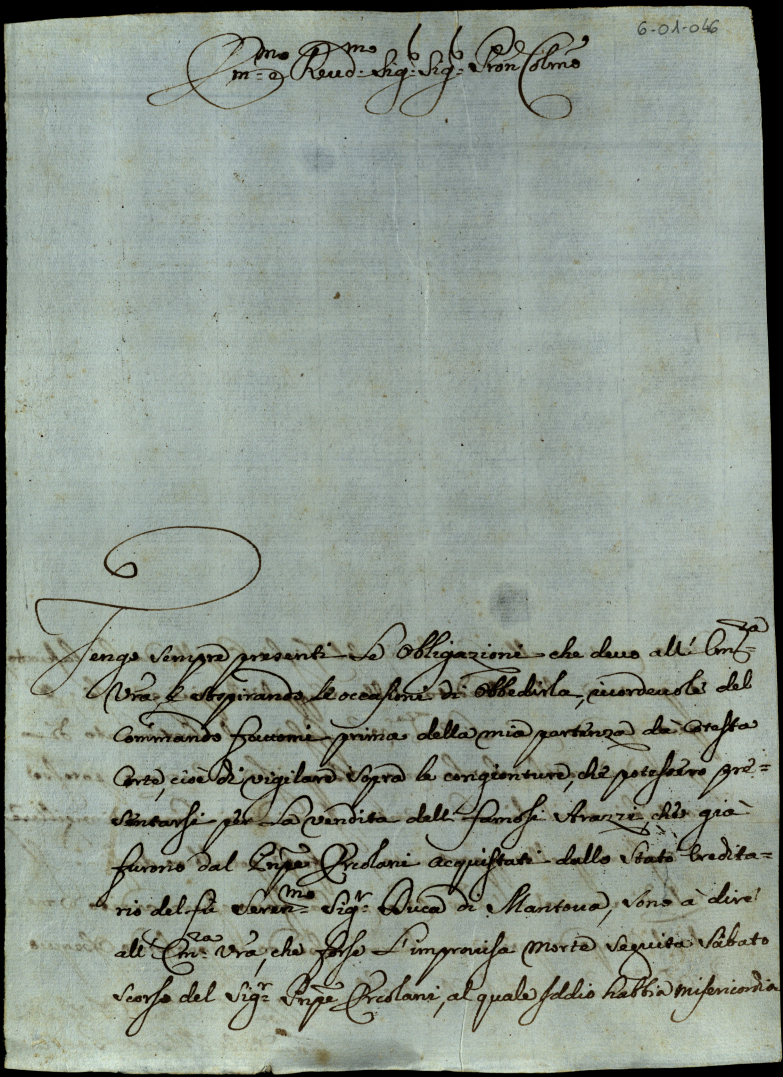 6-01-046
Em.mo e Reud.mo Sig.r Sig.r Pron Colmo
Tengo sempre presenti le obligazioni che deuo all' Em.za
Vra e sospirando le occasioni di obbedirla, ricordeuole del
Commando fattomi prima della mia partenza da cotesta
Corte, cioè di vigilare sopra le congionture, che potessero pre=
sentarsi per la vendita delli famosi Arazzi, che già
furono dal Pnpe Ercolani acquistati dallo Stato heredita=
rio del fù Seren.mo Sig.r Duca di Mantoua, sono à dire
all' Em.za Vra, che forse l'improuisa morte seguita Sabato
scorso del Sig.r Pnpe Ercolani, al quale Iddio habbia misericordia